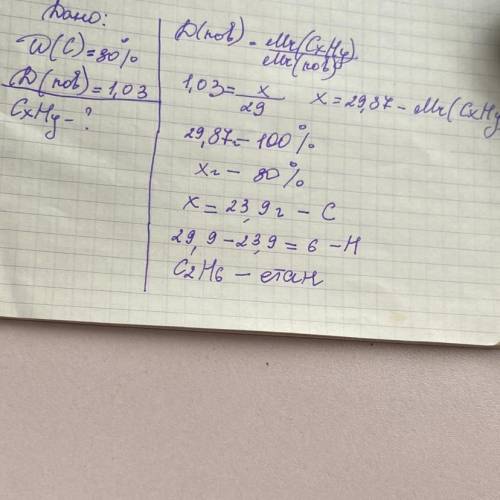 Дано:
W(C)=80%
D(пов)=1,03
CxHy-?
D(пов) = Mr(CxHy)/Mr(пов)
1,03 = x/29   x = 29,87 - Mr(CxHy
29,87г - 100%
xг - 80%
x = 23,9г - C
29,9-23,9 = 6 - H
C2H6 - етан